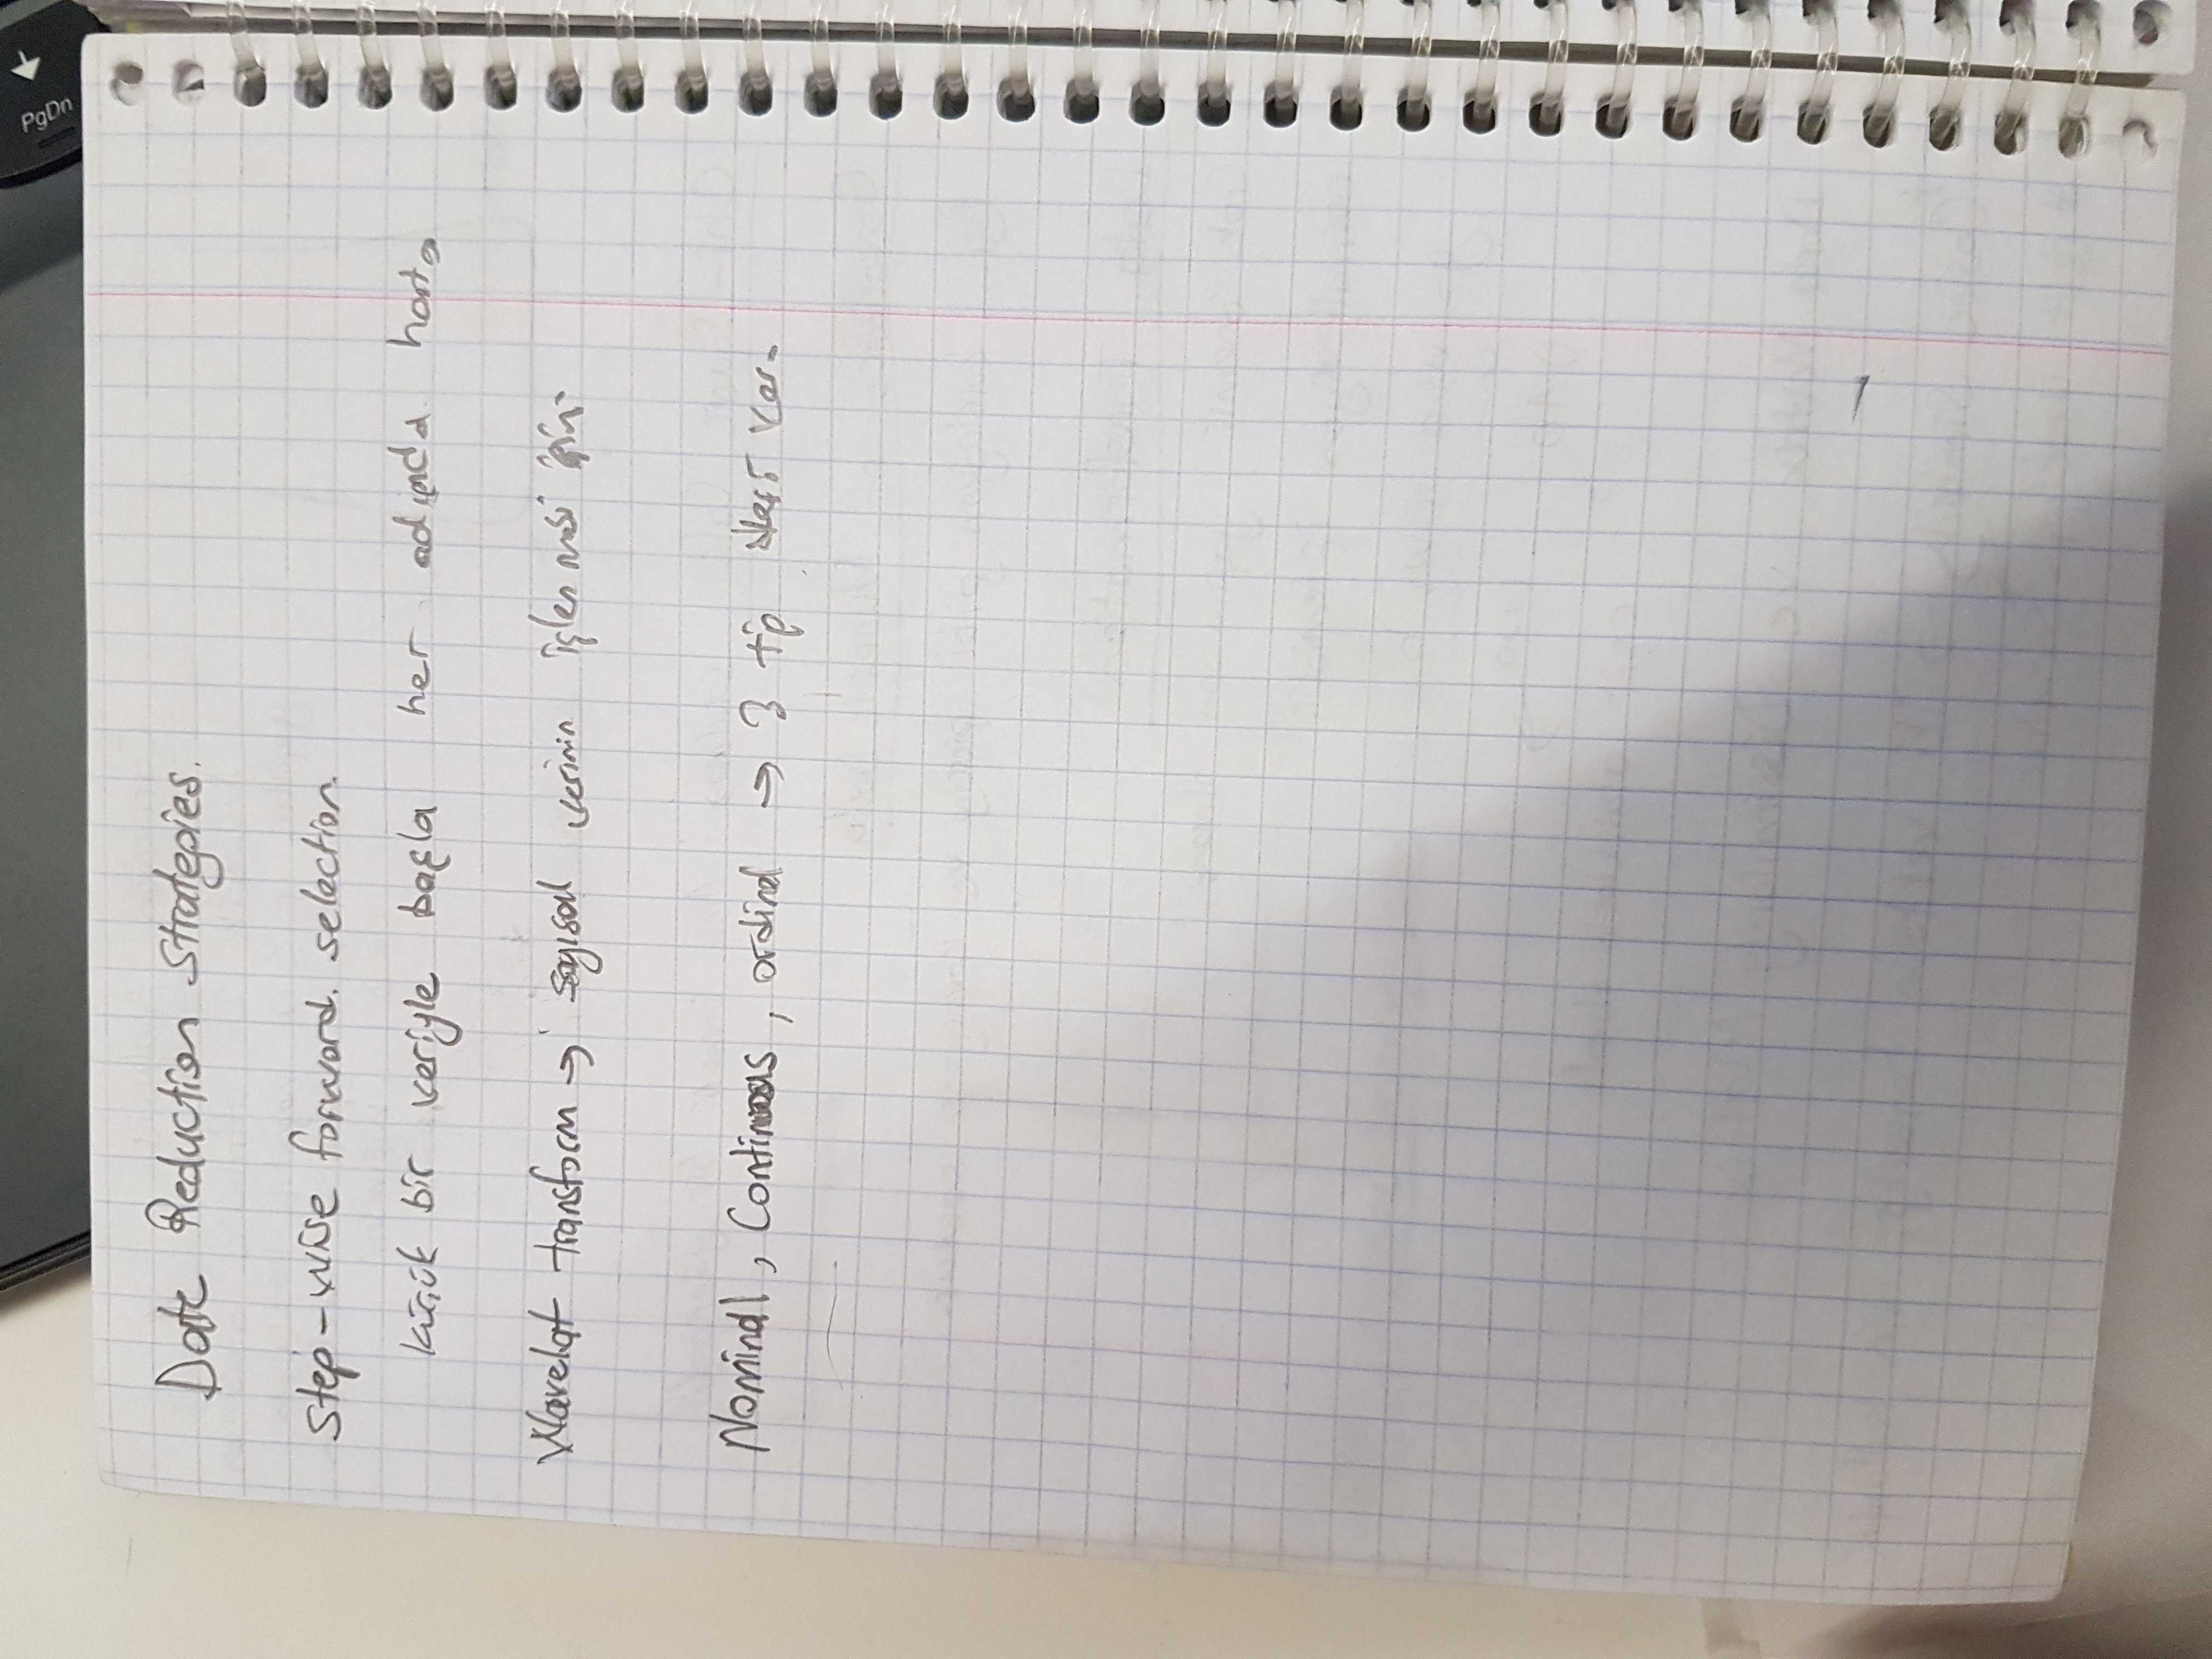 PgDn
Data Reduction Strategies.
Step-wise forward. selection.
küçük bir veriyle başla her adımda
Wavelet transform → sayısal verinin işlenmesi için
Nominal, Continuous, ordinal → 3 tip veri var.